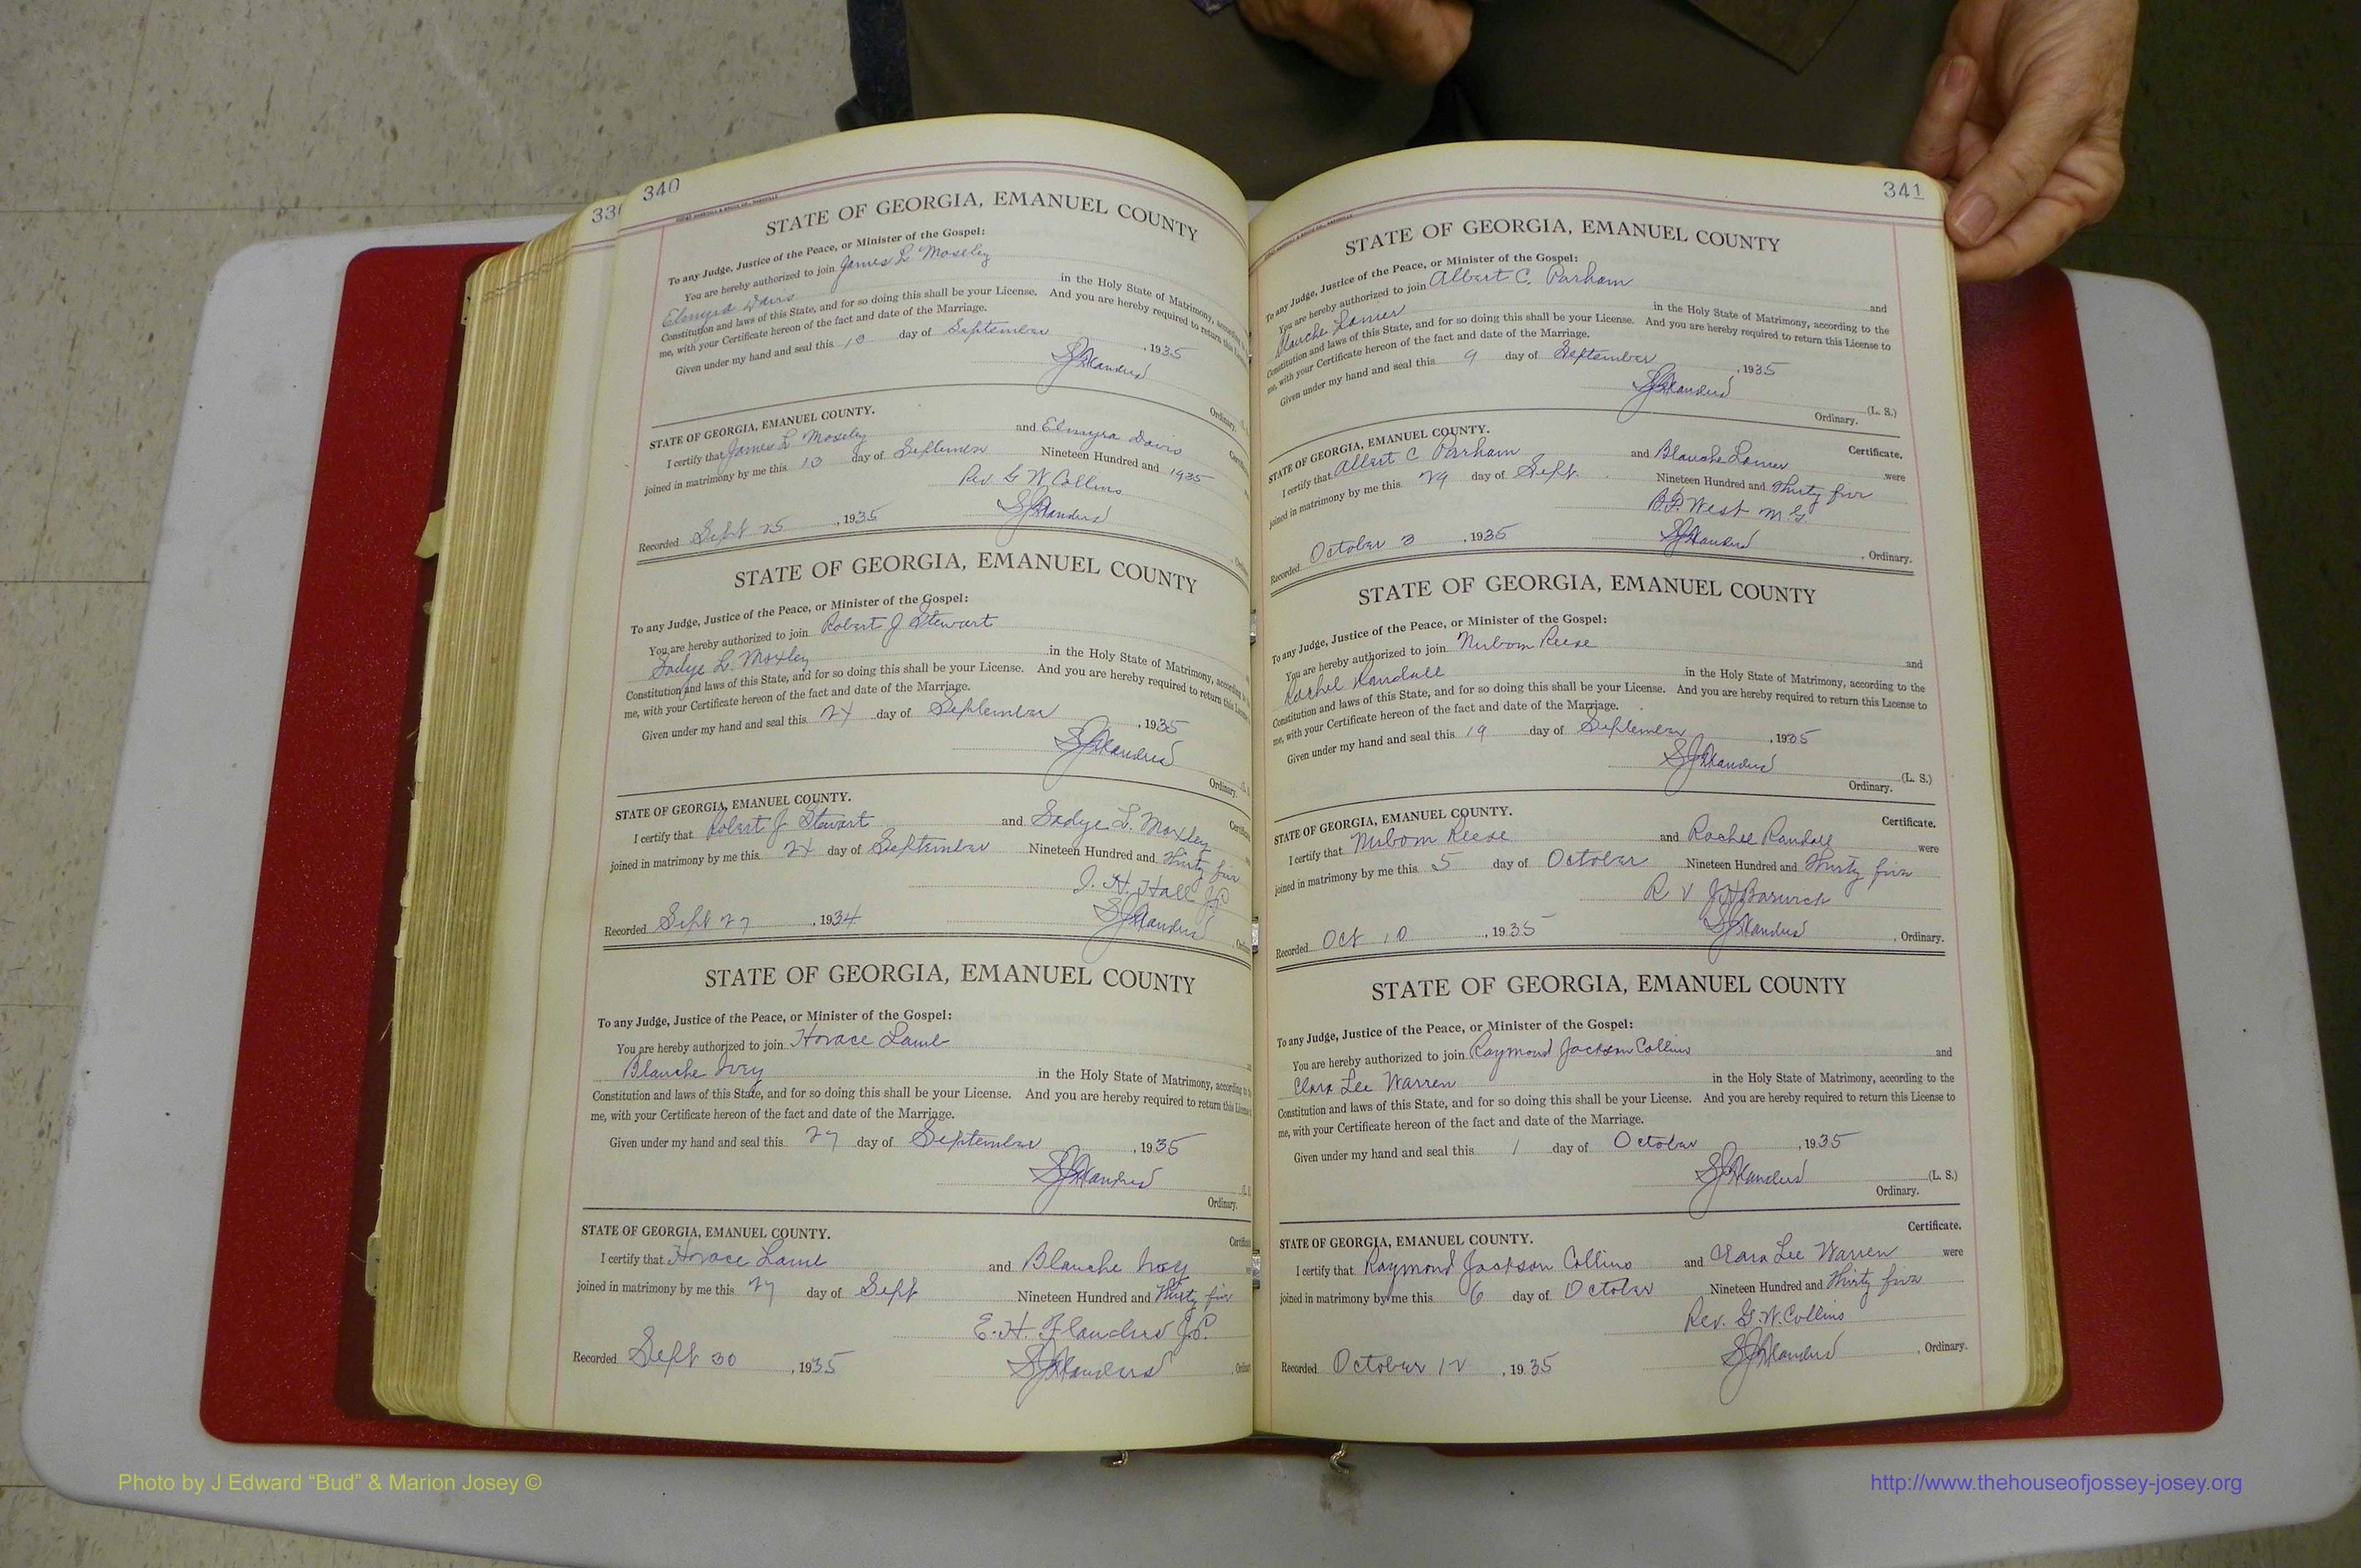 340
STATE OF GEORGIA, EMANUEL COUNTY
To any Judge, Justice of the Peace, or Minister of the Gospel:
You are hereby authorized to join James L Moseley
Elmyra Davis in the Holy State of Matrimony,
Constitution and laws of this State, and for so doing this shall be your License. And you are hereby required to return this
me, with your Certificate hereon of the fact and date of the Marriage.
Given under my hand and seal this day of September, 1935
Ordinary.
STATE OF GEORGIA, EMANUEL COUNTY.
I certify that James L Moseley and Elmyra Davis
joined in matrimony by me this day of September Nineteen Hundred and 1935
Rev. G W Collins
Recorded Sept 25, 1935
STATE OF GEORGIA, EMANUEL COUNTY
To any Judge, Justice of the Peace, or Minister of the Gospel:
You are hereby authorized to join Robert J Stewart
Sadye L. Moxley in the Holy State of Matrimony, according
Constitution and laws of this State, and for so doing this shall be your License. And you are hereby required to return this License
me, with your Certificate hereon of the fact and date of the Marriage.
Given under my hand and seal this 24 day of September, 1935
Ordinary.
STATE OF GEORGIA, EMANUEL COUNTY.
I certify that Robert J. Stewart and Sadye L. Moxley
joined in matrimony by me this 24 day of September Nineteen Hundred and Thirty five
J. H. Hall J.P.
Recorded Sept 27, 1934
STATE OF GEORGIA, EMANUEL COUNTY
To any Judge, Justice of the Peace, or Minister of the Gospel:
You are hereby authorized to join Horace Lamb
Blanche Ivey in the Holy State of Matrimony, according to
Constitution and laws of this State, and for so doing this shall be your License. And you are hereby required to return this License
me, with your Certificate hereon of the fact and date of the Marriage.
Given under my hand and seal this 27 day of September, 1935
Ordinary.
STATE OF GEORGIA, EMANUEL COUNTY.
I certify that Horace Lamb and Blanche Ivey
joined in matrimony by me this 27 day of Sept Nineteen Hundred and Thirty five
E. H. Flanders J.P.
Recorded Sept 30, 1935
341
STATE OF GEORGIA, EMANUEL COUNTY
To any Judge, Justice of the Peace, or Minister of the Gospel:
You are hereby authorized to join Albert C. Parham and
Blanche Lanier in the Holy State of Matrimony, according to the
Constitution and laws of this State, and for so doing this shall be your License. And you are hereby required to return this License to
me, with your Certificate hereon of the fact and date of the Marriage.
Given under my hand and seal this 9 day of September, 1935
(L. S.)
Ordinary.
Certificate.
STATE OF GEORGIA, EMANUEL COUNTY.
I certify that Albert C Parham and Blanche Lanier were
joined in matrimony by me this 29 day of Sept. Nineteen Hundred and Thirty five
B.D. West M.G.
Recorded October 3, 1935, Ordinary.
STATE OF GEORGIA, EMANUEL COUNTY
To any Judge, Justice of the Peace, or Minister of the Gospel:
You are hereby authorized to join Reese and
Rachel Randall in the Holy State of Matrimony, according to the
Constitution and laws of this State, and for so doing this shall be your License. And you are hereby required to return this License to
me, with your Certificate hereon of the fact and date of the Marriage.
Given under my hand and seal this 19 day of September, 1935
(L. S.)
Ordinary.
Certificate.
STATE OF GEORGIA, EMANUEL COUNTY.
I certify that Reese and Rachel Randall were
joined in matrimony by me this 5 day of October Nineteen Hundred and Thirty five
R V J H Barwick
Recorded Oct 10, 1935, Ordinary.
STATE OF GEORGIA, EMANUEL COUNTY
To any Judge, Justice of the Peace, or Minister of the Gospel:
You are hereby authorized to join Raymond Jackson Collins and
Clara Lee Warren in the Holy State of Matrimony, according to the
Constitution and laws of this State, and for so doing this shall be your License. And you are hereby required to return this License to
me, with your Certificate hereon of the fact and date of the Marriage.
Given under my hand and seal this 1 day of October, 1935
(L. S.)
Ordinary.
Certificate.
STATE OF GEORGIA, EMANUEL COUNTY.
I certify that Raymond Jackson Collins and Clara Lee Warren were
joined in matrimony by me this 6 day of October Nineteen Hundred and Thirty five
Rev. G.W. Collins
Recorded October 12, 1935, Ordinary.
Photo by J Edward “Bud” & Marion Josey ©
http://www.thehouseofjossey-josey.org